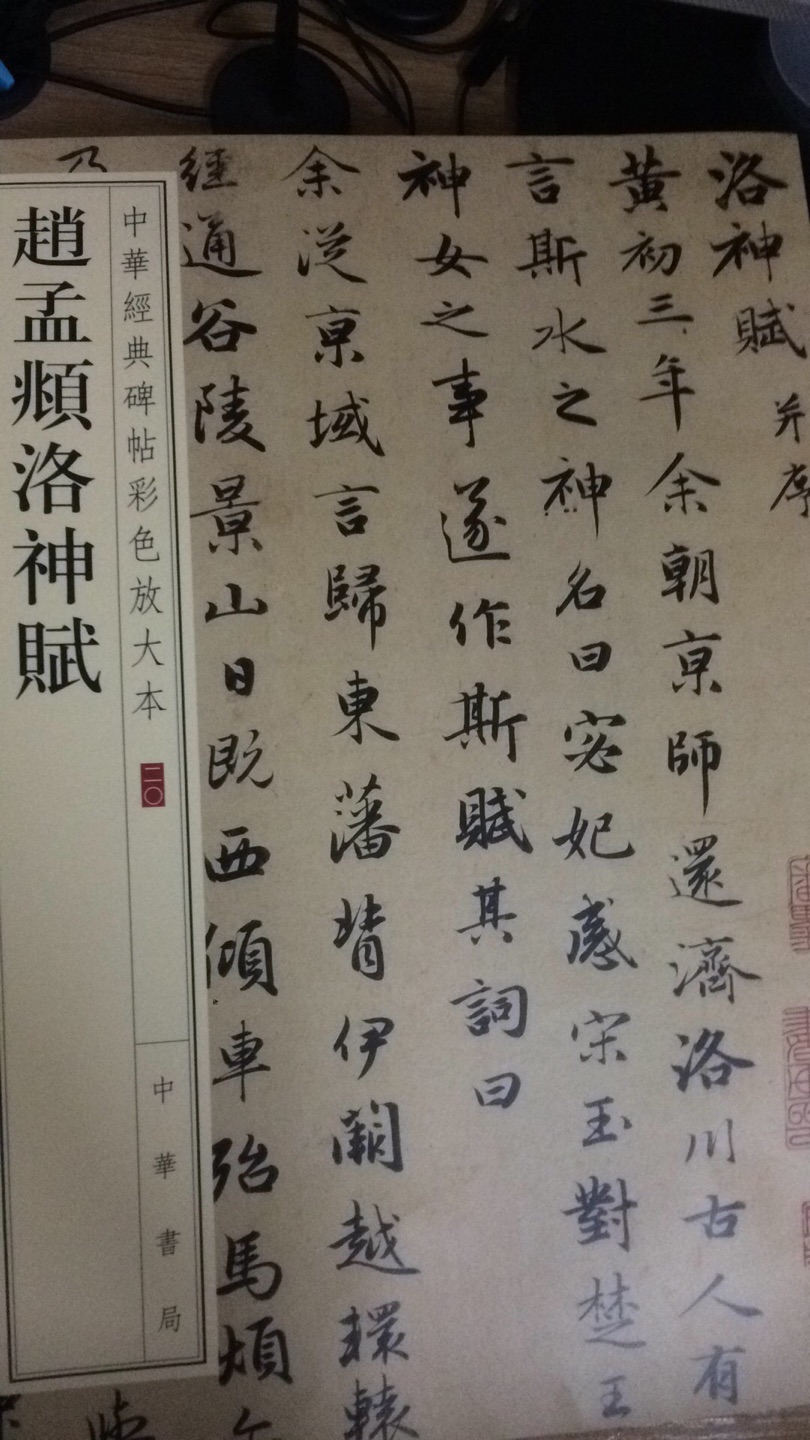 洛神賦 并序
黄初三年余朝京師還濟洛川古人有
言斯水之神名曰宓妃感宋玉對楚王
神女之事遂作斯賦其詞曰
余從京域言歸東藩背伊闕越轘轅
經通谷陵景山日既西傾車殆馬煩
乃
中華經典碑帖彩色放大本 二〇
中華書局
趙孟頫洛神賦